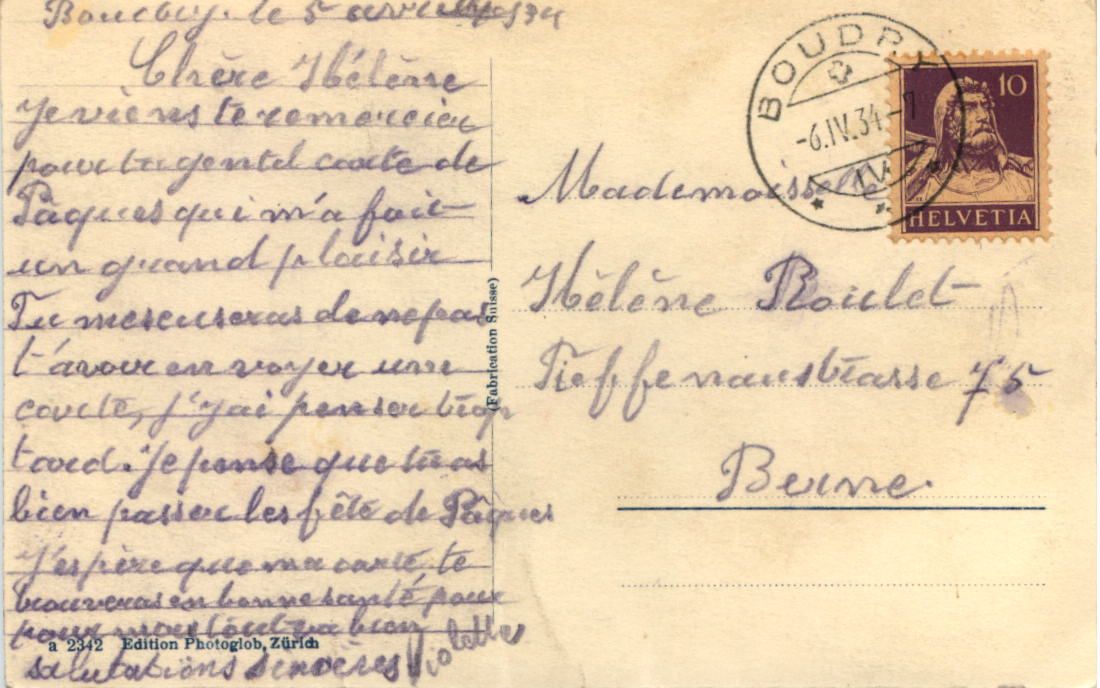 Boudry. le 5 avril 1934
Chère Hélène
Je viens te remercier
pour ta gentil carte de
Pâques qui m'a fait
un grand plaisir
Tu mescuseras de ne pas
t'avoir en voyer une
carte, j'y ai penser trop
tard. Je pense que tu as
bien passer les fêté de Pâques
J'espère que ma carte te
trouveras en bonne santé pour
pour nous tout va bien
salutations sincères Violette
a 2342 Edition Photoglob, Zürich
(Fabrication Suisse)
BOUDRY
-6.IV.34-7
10
HELVETIA
Mademoiselle
Hélène Roulet
Tieffenaustrasse 75
Berne.